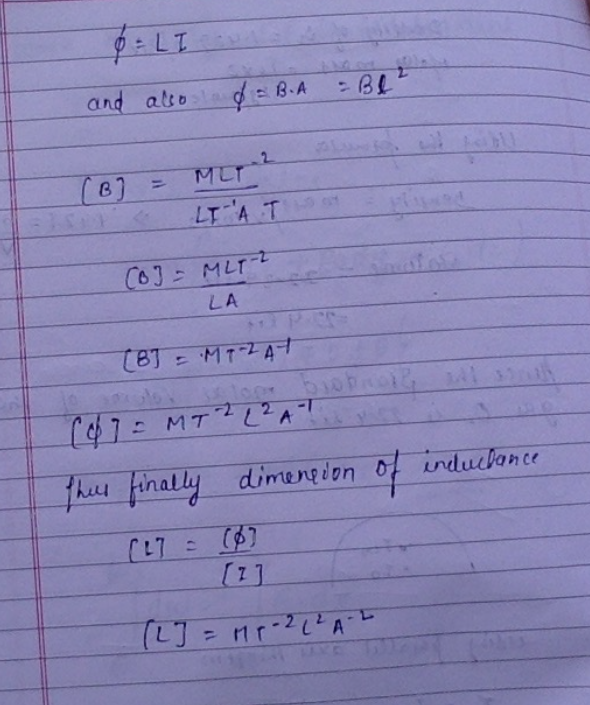 ϕ = LI
and also ϕ = B.A = Bl²
[B] = MLT⁻² / LT⁻¹A T
[B] = MLT⁻² / LA
[B] = MT⁻²A⁻¹
[ϕ] = MT⁻²L²A⁻¹
Thus finally dimension of inductance
[L] = [ϕ] / [I]
[L] = MT⁻²L²A⁻²